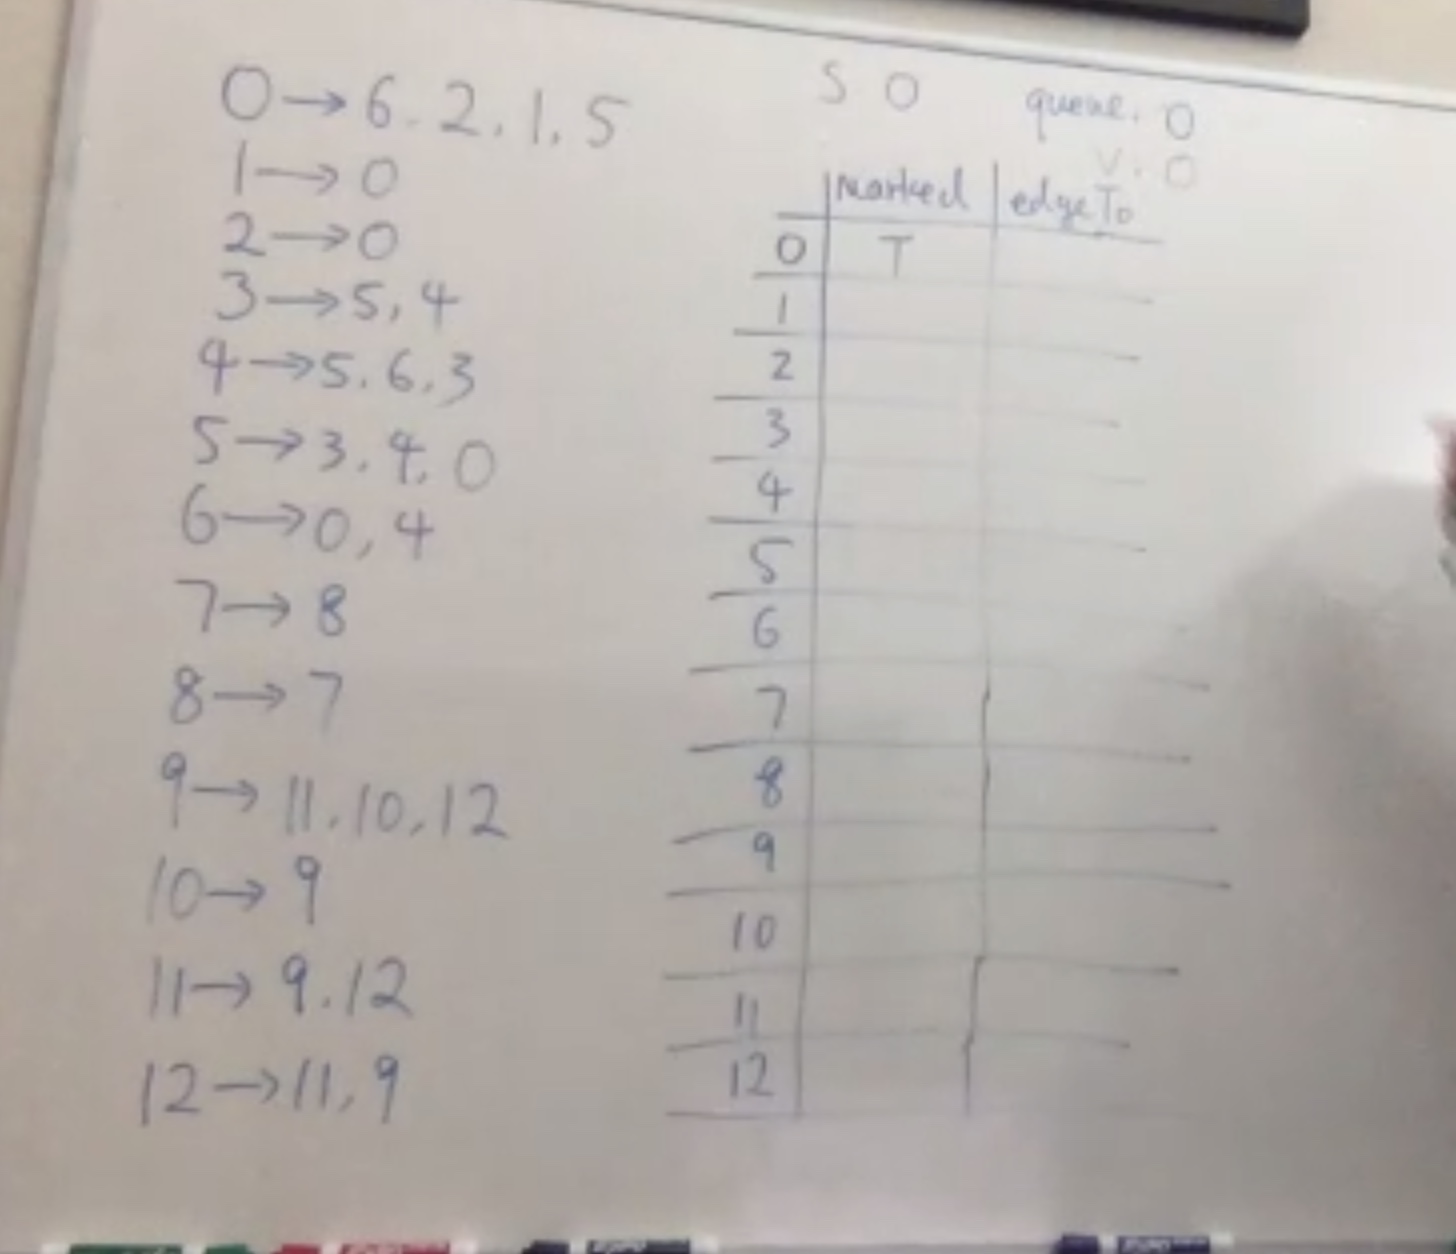 0→6.2.1.5
1→0
2→0
3→5,4
4→5.6.3
5→3.4.0
6→0,4
7→8
8→7
9→11.10.12
10→9
11→9.12
12→11,9
S 0 queue. 0
v. 0
marked edgeTo
0 T
1
2
3
4
5
6
7
8
9
10
11
12